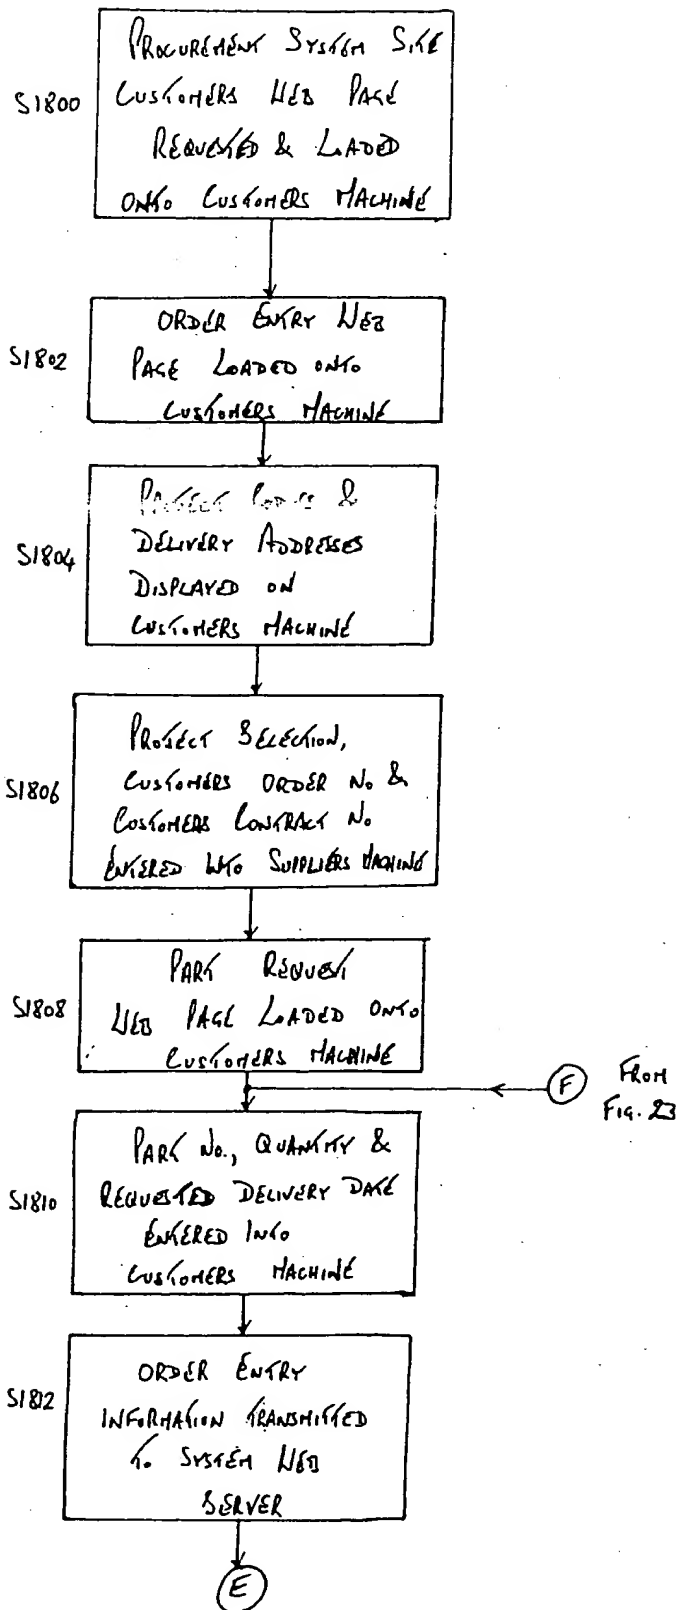 PROCUREMENT SYSTEM SITE
CUSTOMERS WEB PAGE
REQUESTED & LOADED
ONTO CUSTOMERS MACHINE
S1800
ORDER ENTRY WEB
PAGE LOADED ONTO
CUSTOMERS MACHINE
S1802
PROJECT CODES &
DELIVERY ADDRESSES
DISPLAYED ON
CUSTOMERS MACHINE
S1804
PROJECT SELECTION,
CUSTOMERS ORDER No &
CUSTOMERS CONTRACT No
ENTERED INTO SUPPLIERS MACHINE
S1806
PART REQUEST
WEB PAGE LOADED ONTO
CUSTOMERS MACHINE
S1808
F
FROM
FIG. 23
PART No., QUANTITY &
REQUESTED DELIVERY DATE
ENTERED INTO
CUSTOMERS MACHINE
S1810
ORDER ENTRY
INFORMATION TRANSMITTED
TO SYSTEM WEB
SERVER
S1812
E